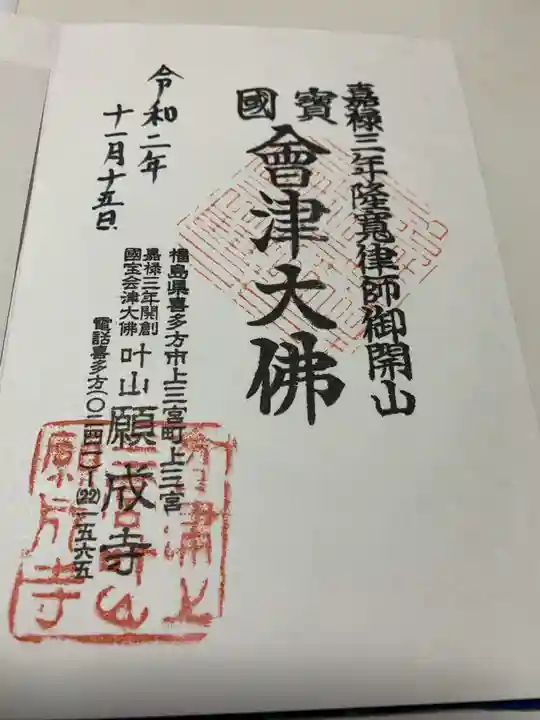 嘉禄三年隆寛律師御開山
國寶
會津大佛
福島県喜多方市上三宮町上三宮
嘉禄三年開創
国宝会津大佛
叶山願成寺
電話喜多方(〇二四一)ー(22)一五六五
令和二年
十一月十五日
願成寺